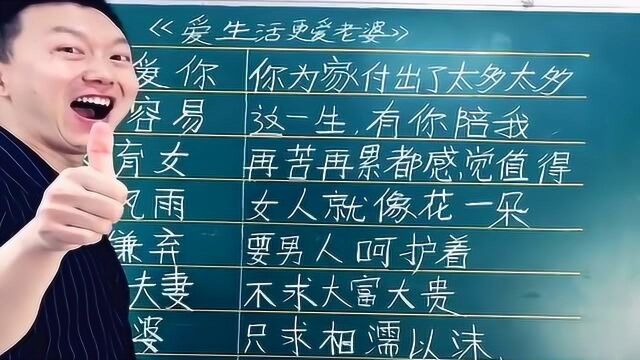 《爱生活更爱老婆》
爱你 你为家付出了太多太多
容易 这一生,有你陪我
育女 再苦再累都感觉值得
风雨 女人就像花一朵
嫌弃 要男人呵护着
夫妻 不求大富大贵
婆 只求相濡以沫.